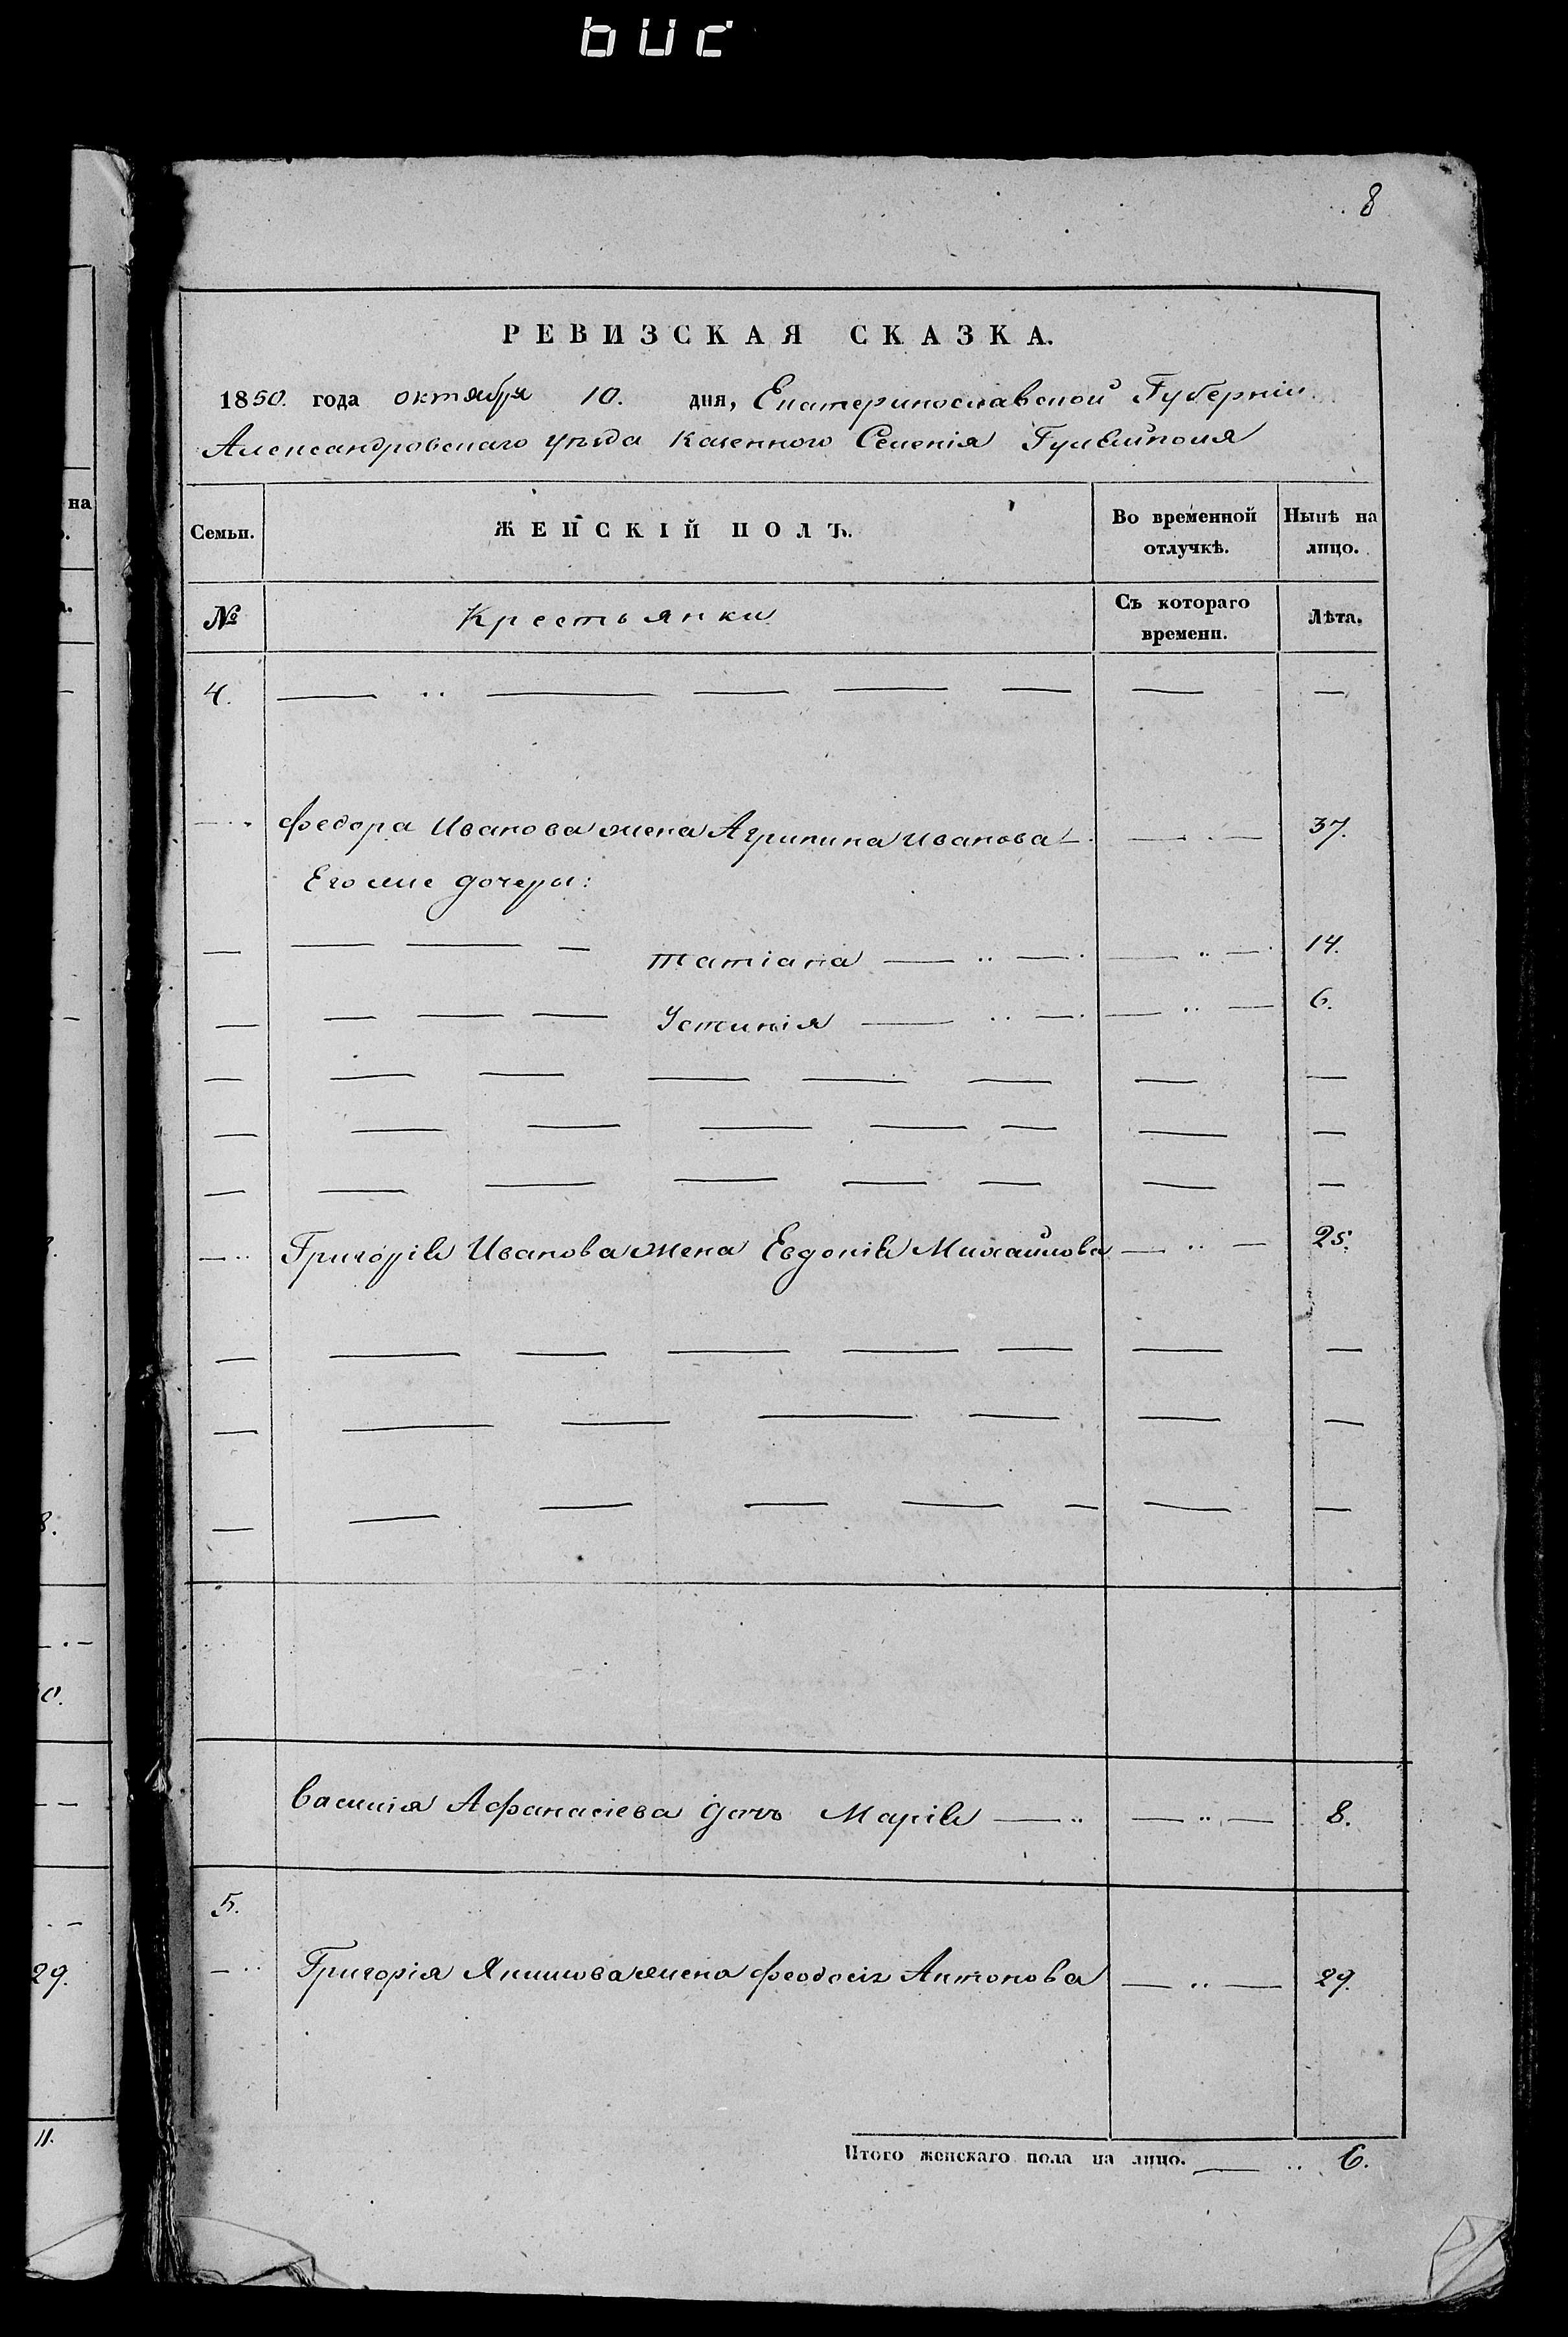 8
РЕВИЗСКАЯ СКАЗКА.
1850. года октября 10. дня, Екатеринославской Губерніи
Александровскаго уѣзда Казенного Селенія Гуляйполя
Семьи. ЖЕНСКІЙ ПОЛЪ. Во временной отлучкѣ. Нынѣ на лицо.
№ Крестьянки Съ котораго времени. Лѣта.
4.
Федора Иванова жена Агрипина Иванова 37.
Его же дочери:
Татіана 14.
Устинія 6.
Григорія Иванова жена Евдокія Михайлова 25.
Василія Афанасіева дочь Марія 8.
5.
Григорія Якимова жена Феодосія Антонова 29.
Итого женскаго пола на лицо. 6.
на
29.
11.